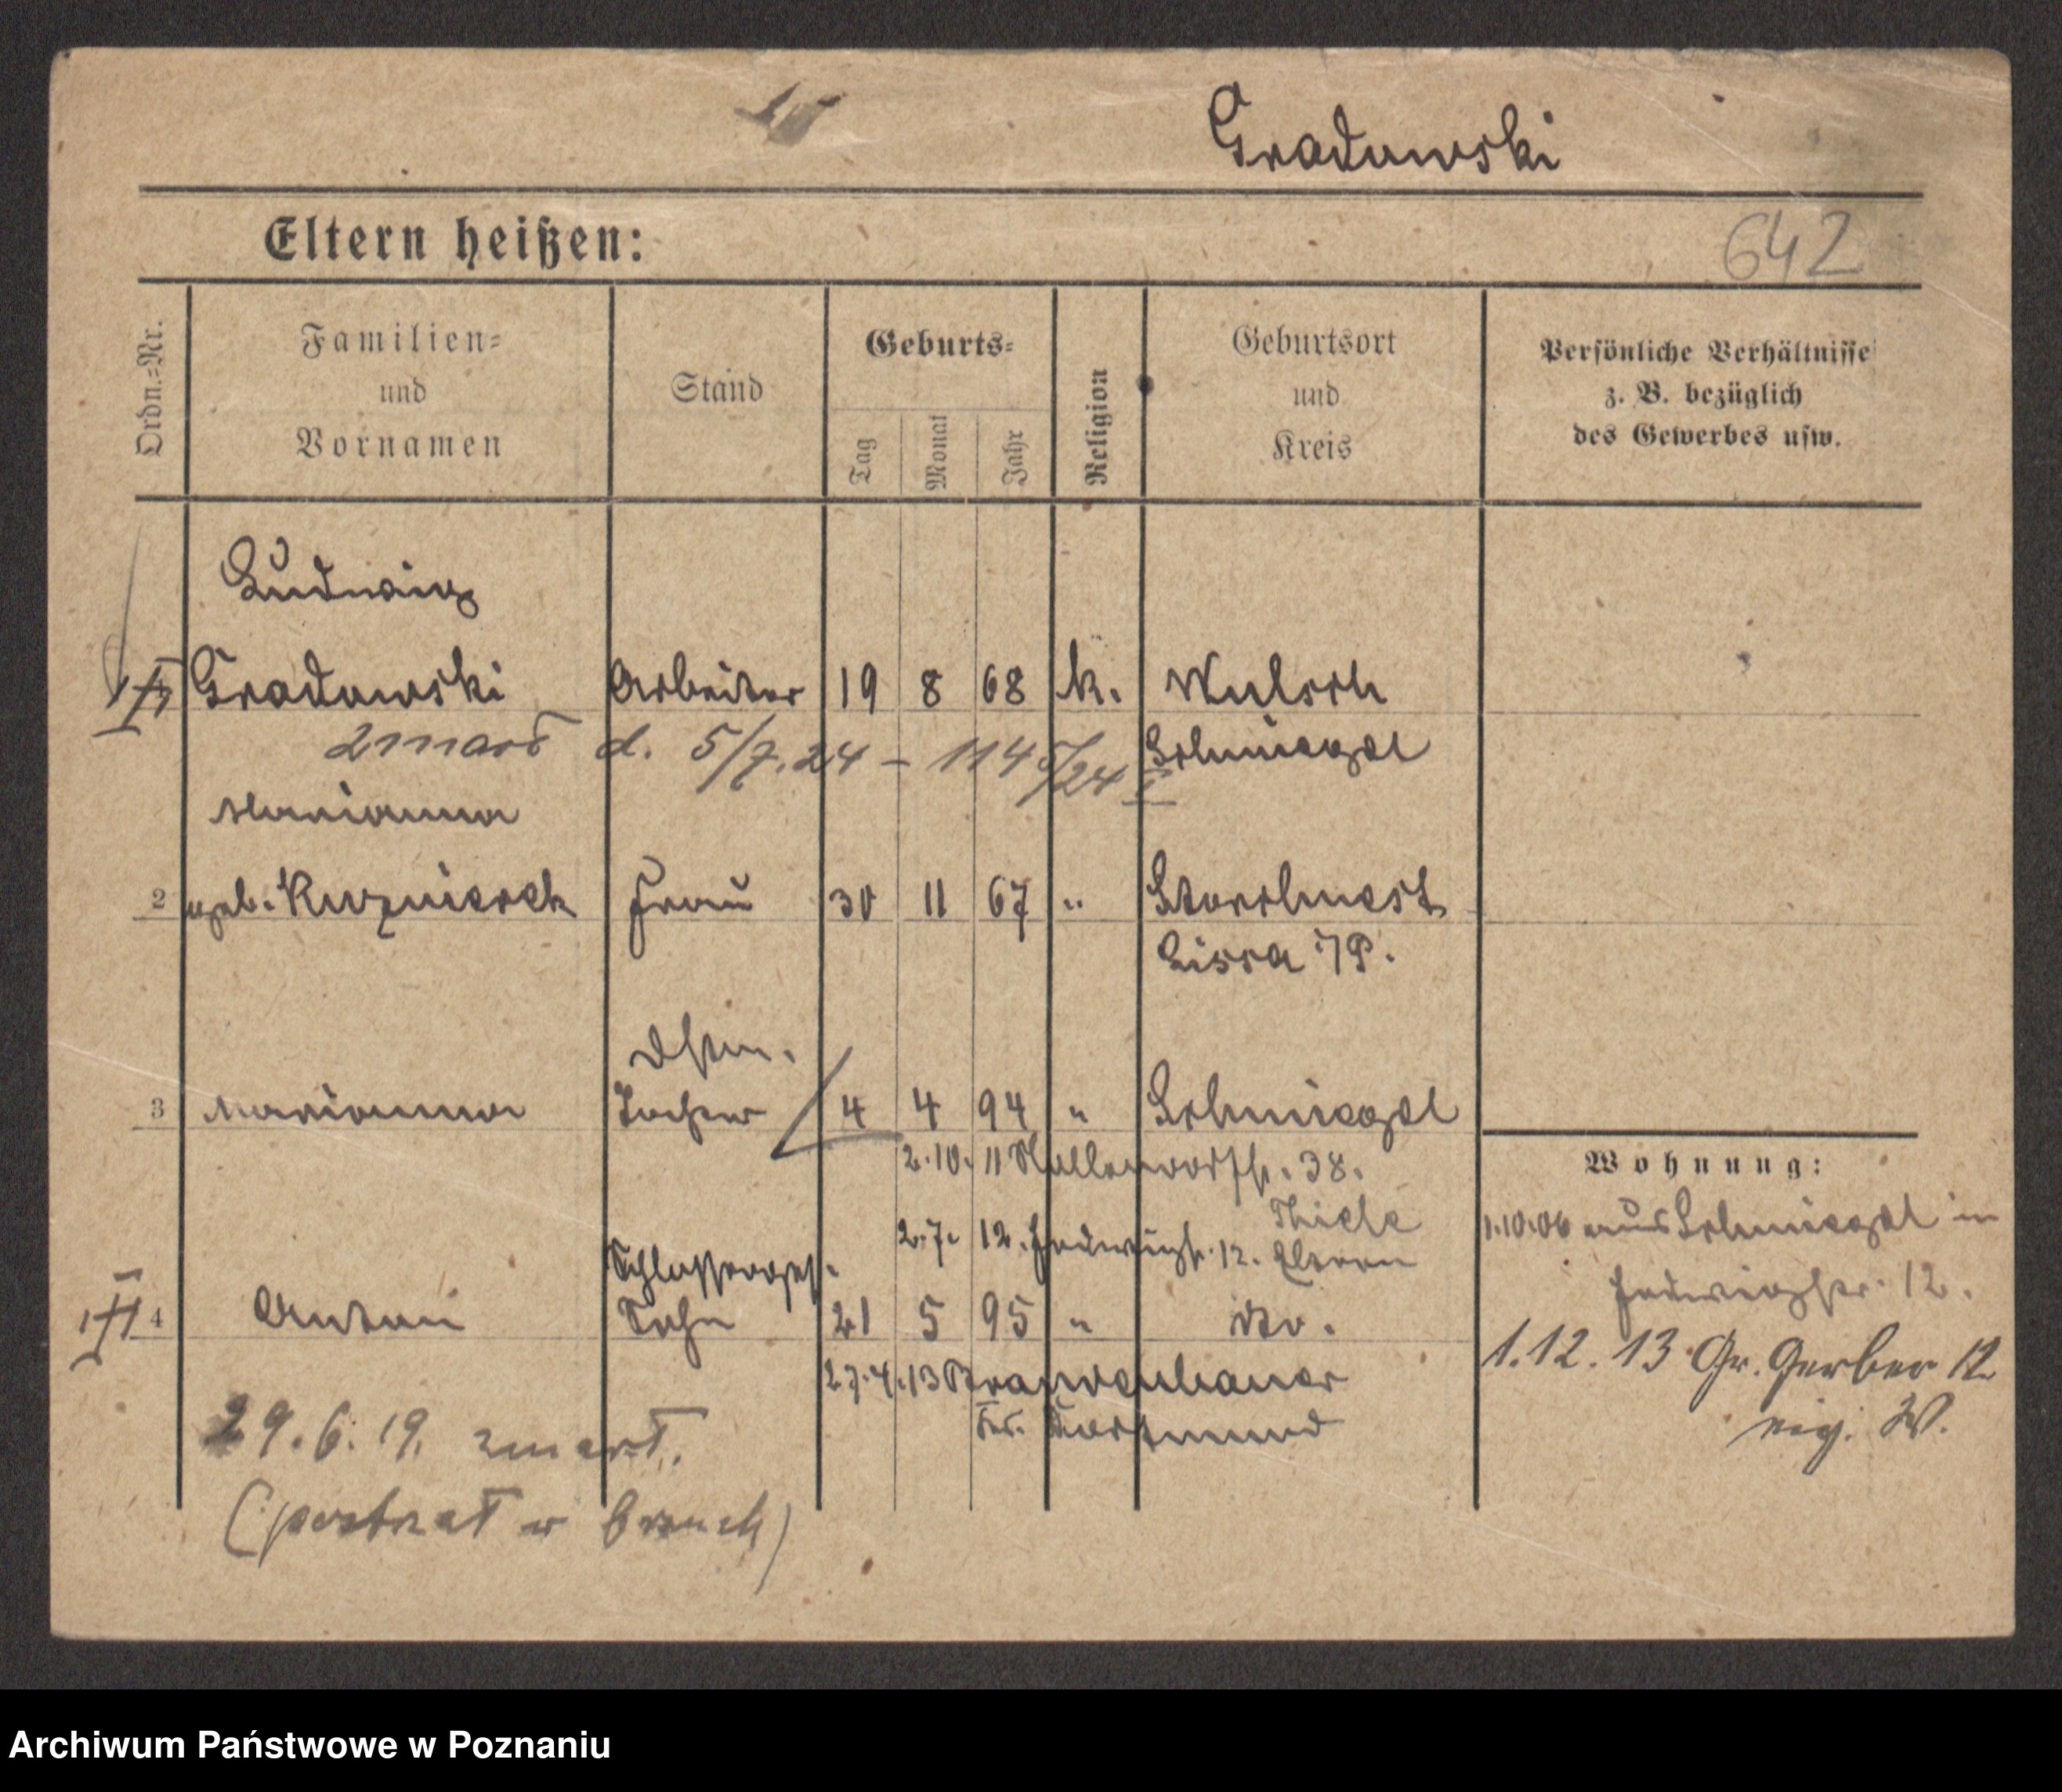 Gradowski
Eltern heißen:
642
Ordn.-Nr.
Familien-
und
Vornamen
Stand
Geburts-
Tag
Monat
Jahr
Religion
Geburtsort
und
Kreis
Persönliche Verhältnisse
z. B. bezüglich
des Gewerbes usw.
Ludwig
Gradowski Arbeiter 19 8 68 k.
Schmiegel
zmarł d. 5/7.24 – 1145/24
Marianna
2 geb. Frau 30 11 67 " Storchnest
Lissa i/P.
Dstm.
3 Marianna Tochter 4 4 94 " Schmiegel
2.10.11 38.
2.7.12. Hedwigstr. 12. Thiele
Eltern
Schlosserges.
4 Anton Sohn 21 5 95 " do.
27.4.13
Dortmund
29.6.19. zmarł.
Wohnung:
1.10.06 aus Schmiegel in
Hedwigstr. 12.
1.12.13 Gr. Gerber 12
eig. W.
Archiwum Państwowe w Poznaniu